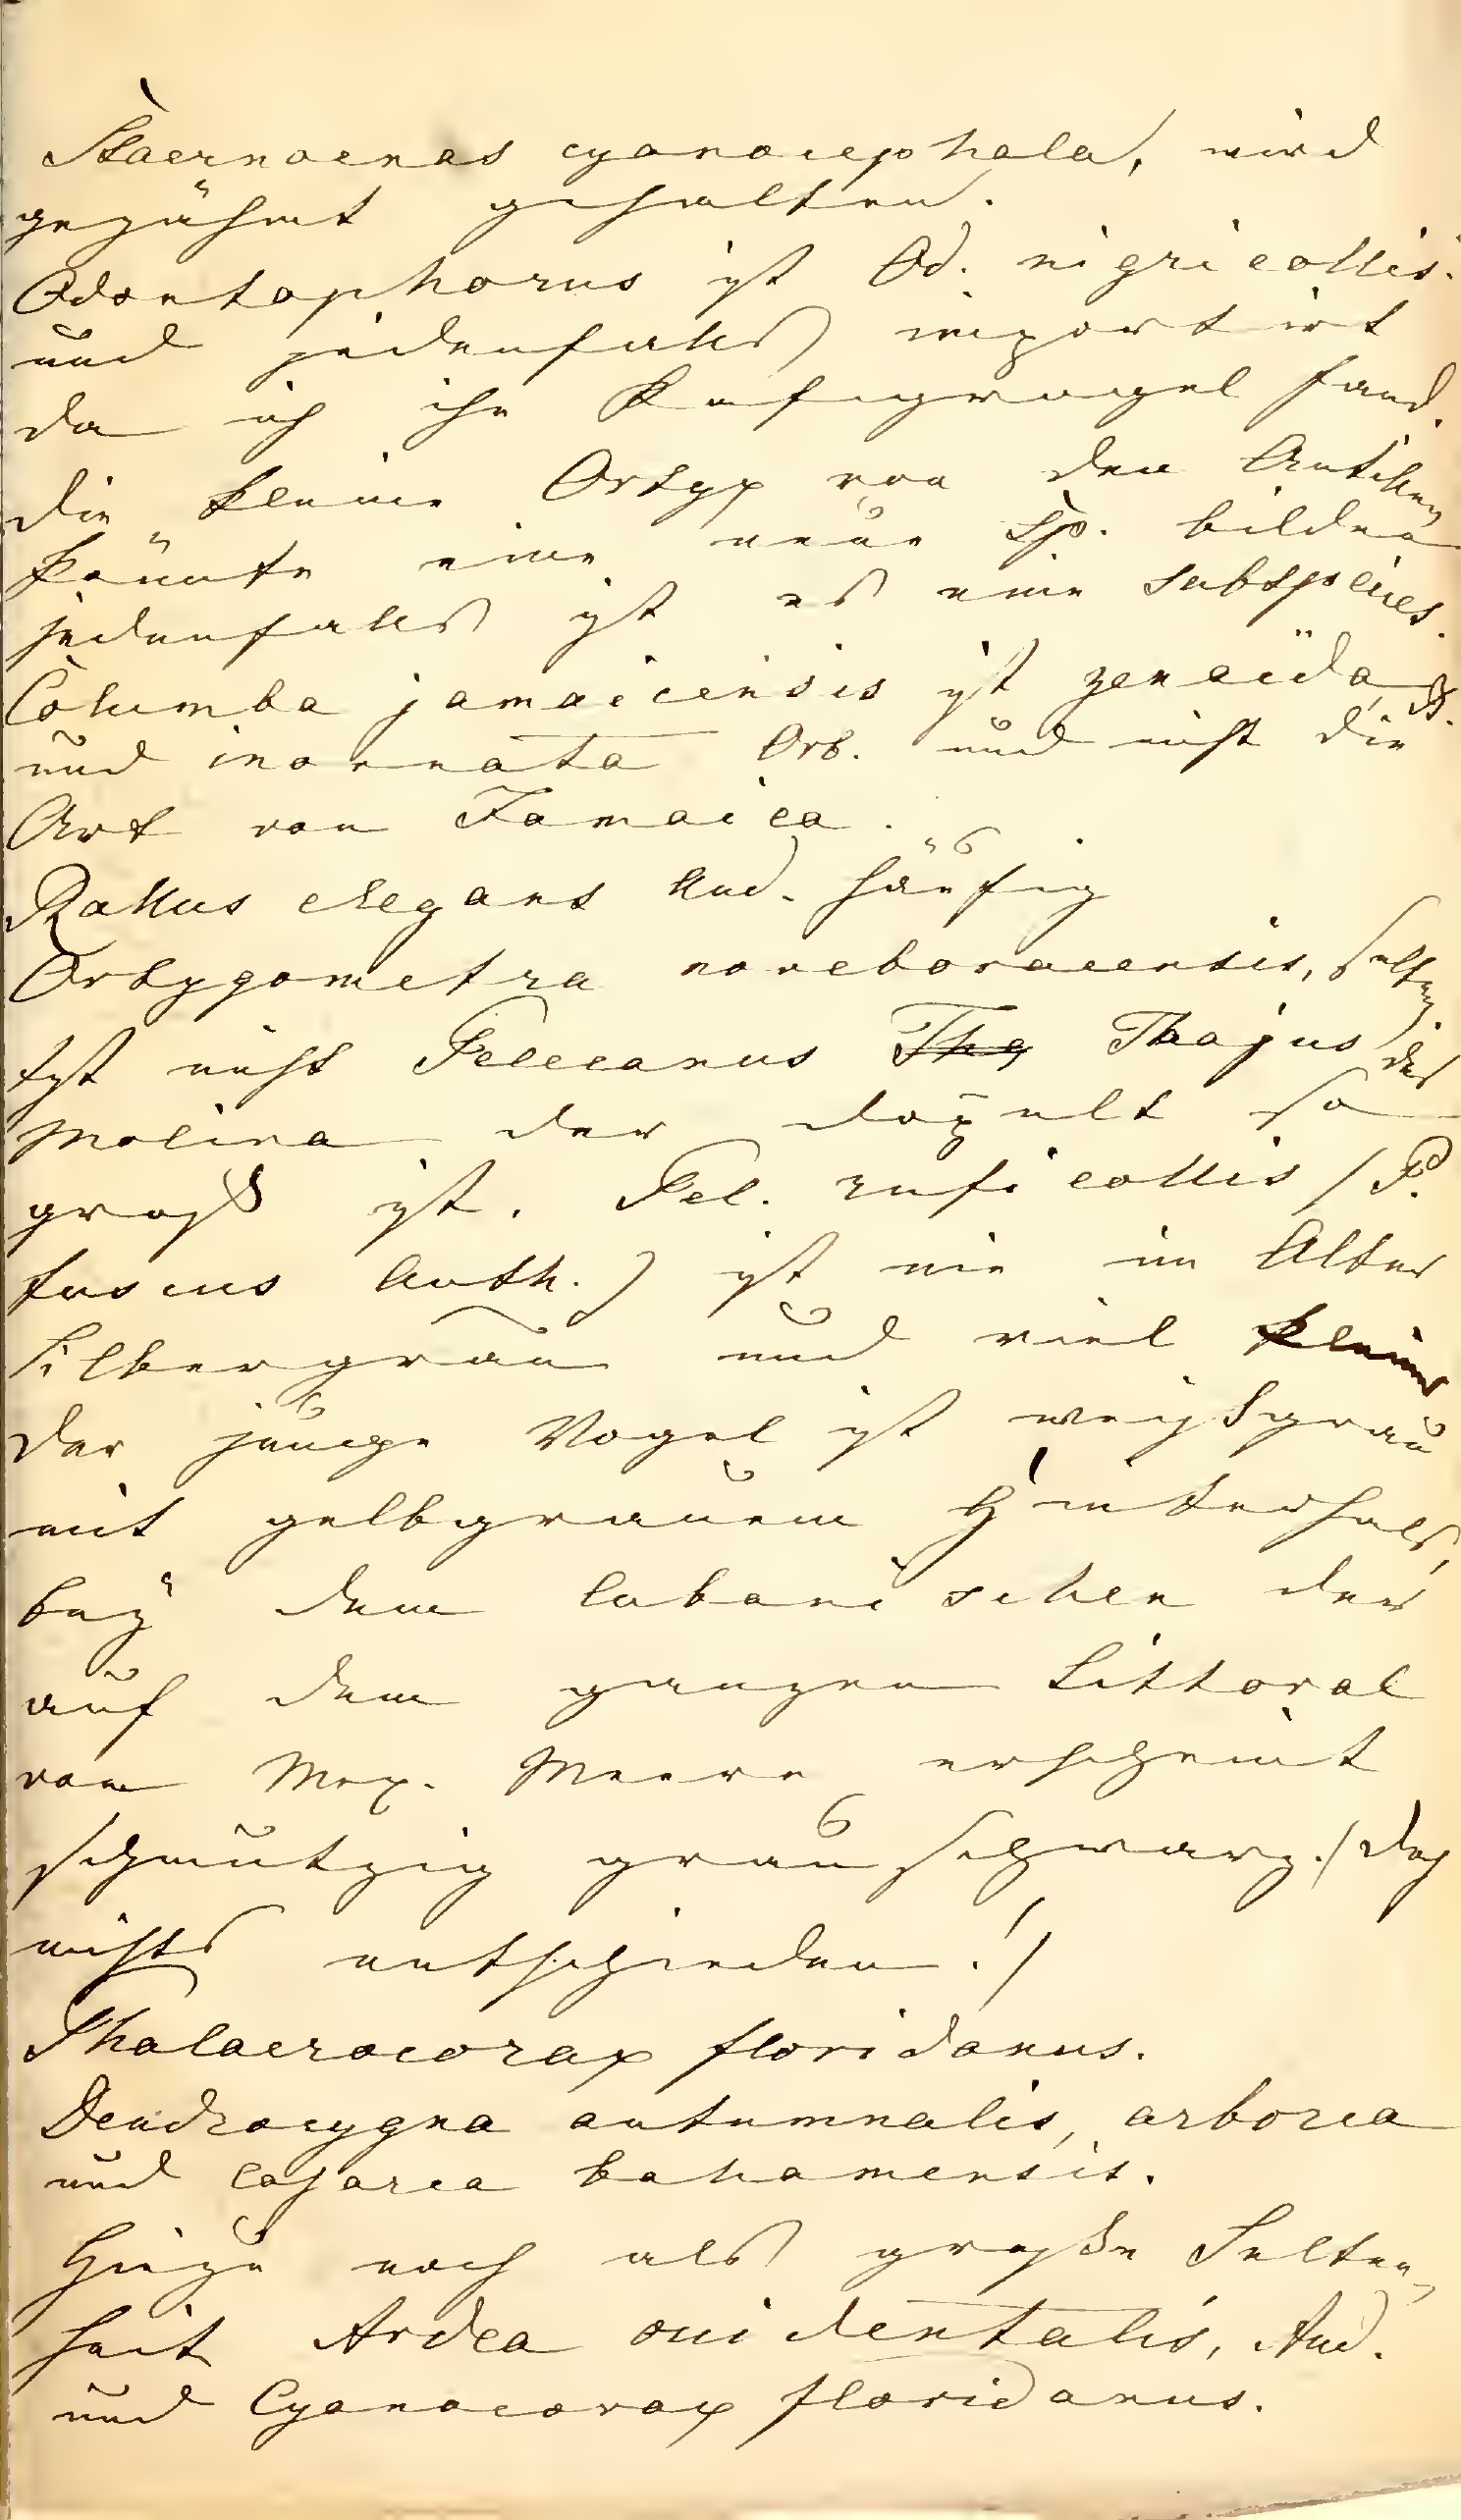 Staernoenas cyanocephala, wird
gezähmt gehalten.
Odontophorus ist Od. nigricollis.
und jedenfalls importirt
da ich ihn Kaefigvogel fand.
die kleine Ortyx von den Antillen
könnte eine neue Sp. bilden
jedenfalls ist es eine subspecies.
Columba jamaicensis ist zenaïda
und inornata Orb. und nicht die
Art von Jamaica.
Rallus elegans Aud. häufig
Ortygometra noveboracensis, selten.
Ist nicht Pelecanus Thajus des
Molina der dopelt so
groß ist. Pel. ruficollis / P.
fuscus Auth. ) ist nie im Alter
Silbergrau und viel kleiner
der junge Vogel ist weißgrau
mit gelbgrauem Hinterhals,
bey dem Cubanischen der
auf dem ganzen Littoral
vom Mex. Meere erscheint
schmutzig grau schwarz. / doch
nichts entschieden! /
Phalacrocorax floridanus.
Dendrocygna autumnalis, arborea
und Casarca bahamensis.
Hiezu noch als große Selten,
heit Ardea occidentalis, Aud.
und Cyanocorax floridanus.